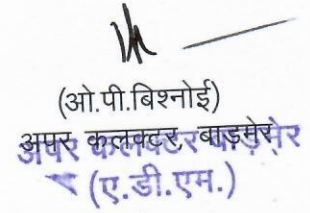 (ओ.पी.बिश्नोई)
अपर कलक्टर, बाड़मेर
अपर कलक्टर बाड़मेर
(ए.डी.एम.)